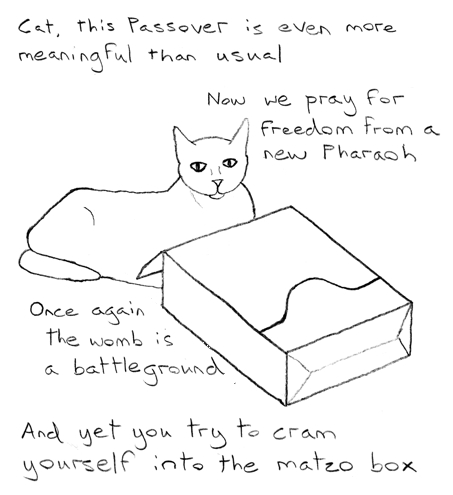 Cat, this Passover is even more
meaningful than usual
Now we pray for
freedom from a
new Pharaoh
Once again
the womb is
a battleground
And yet you try to cram
yourself into the matzo box